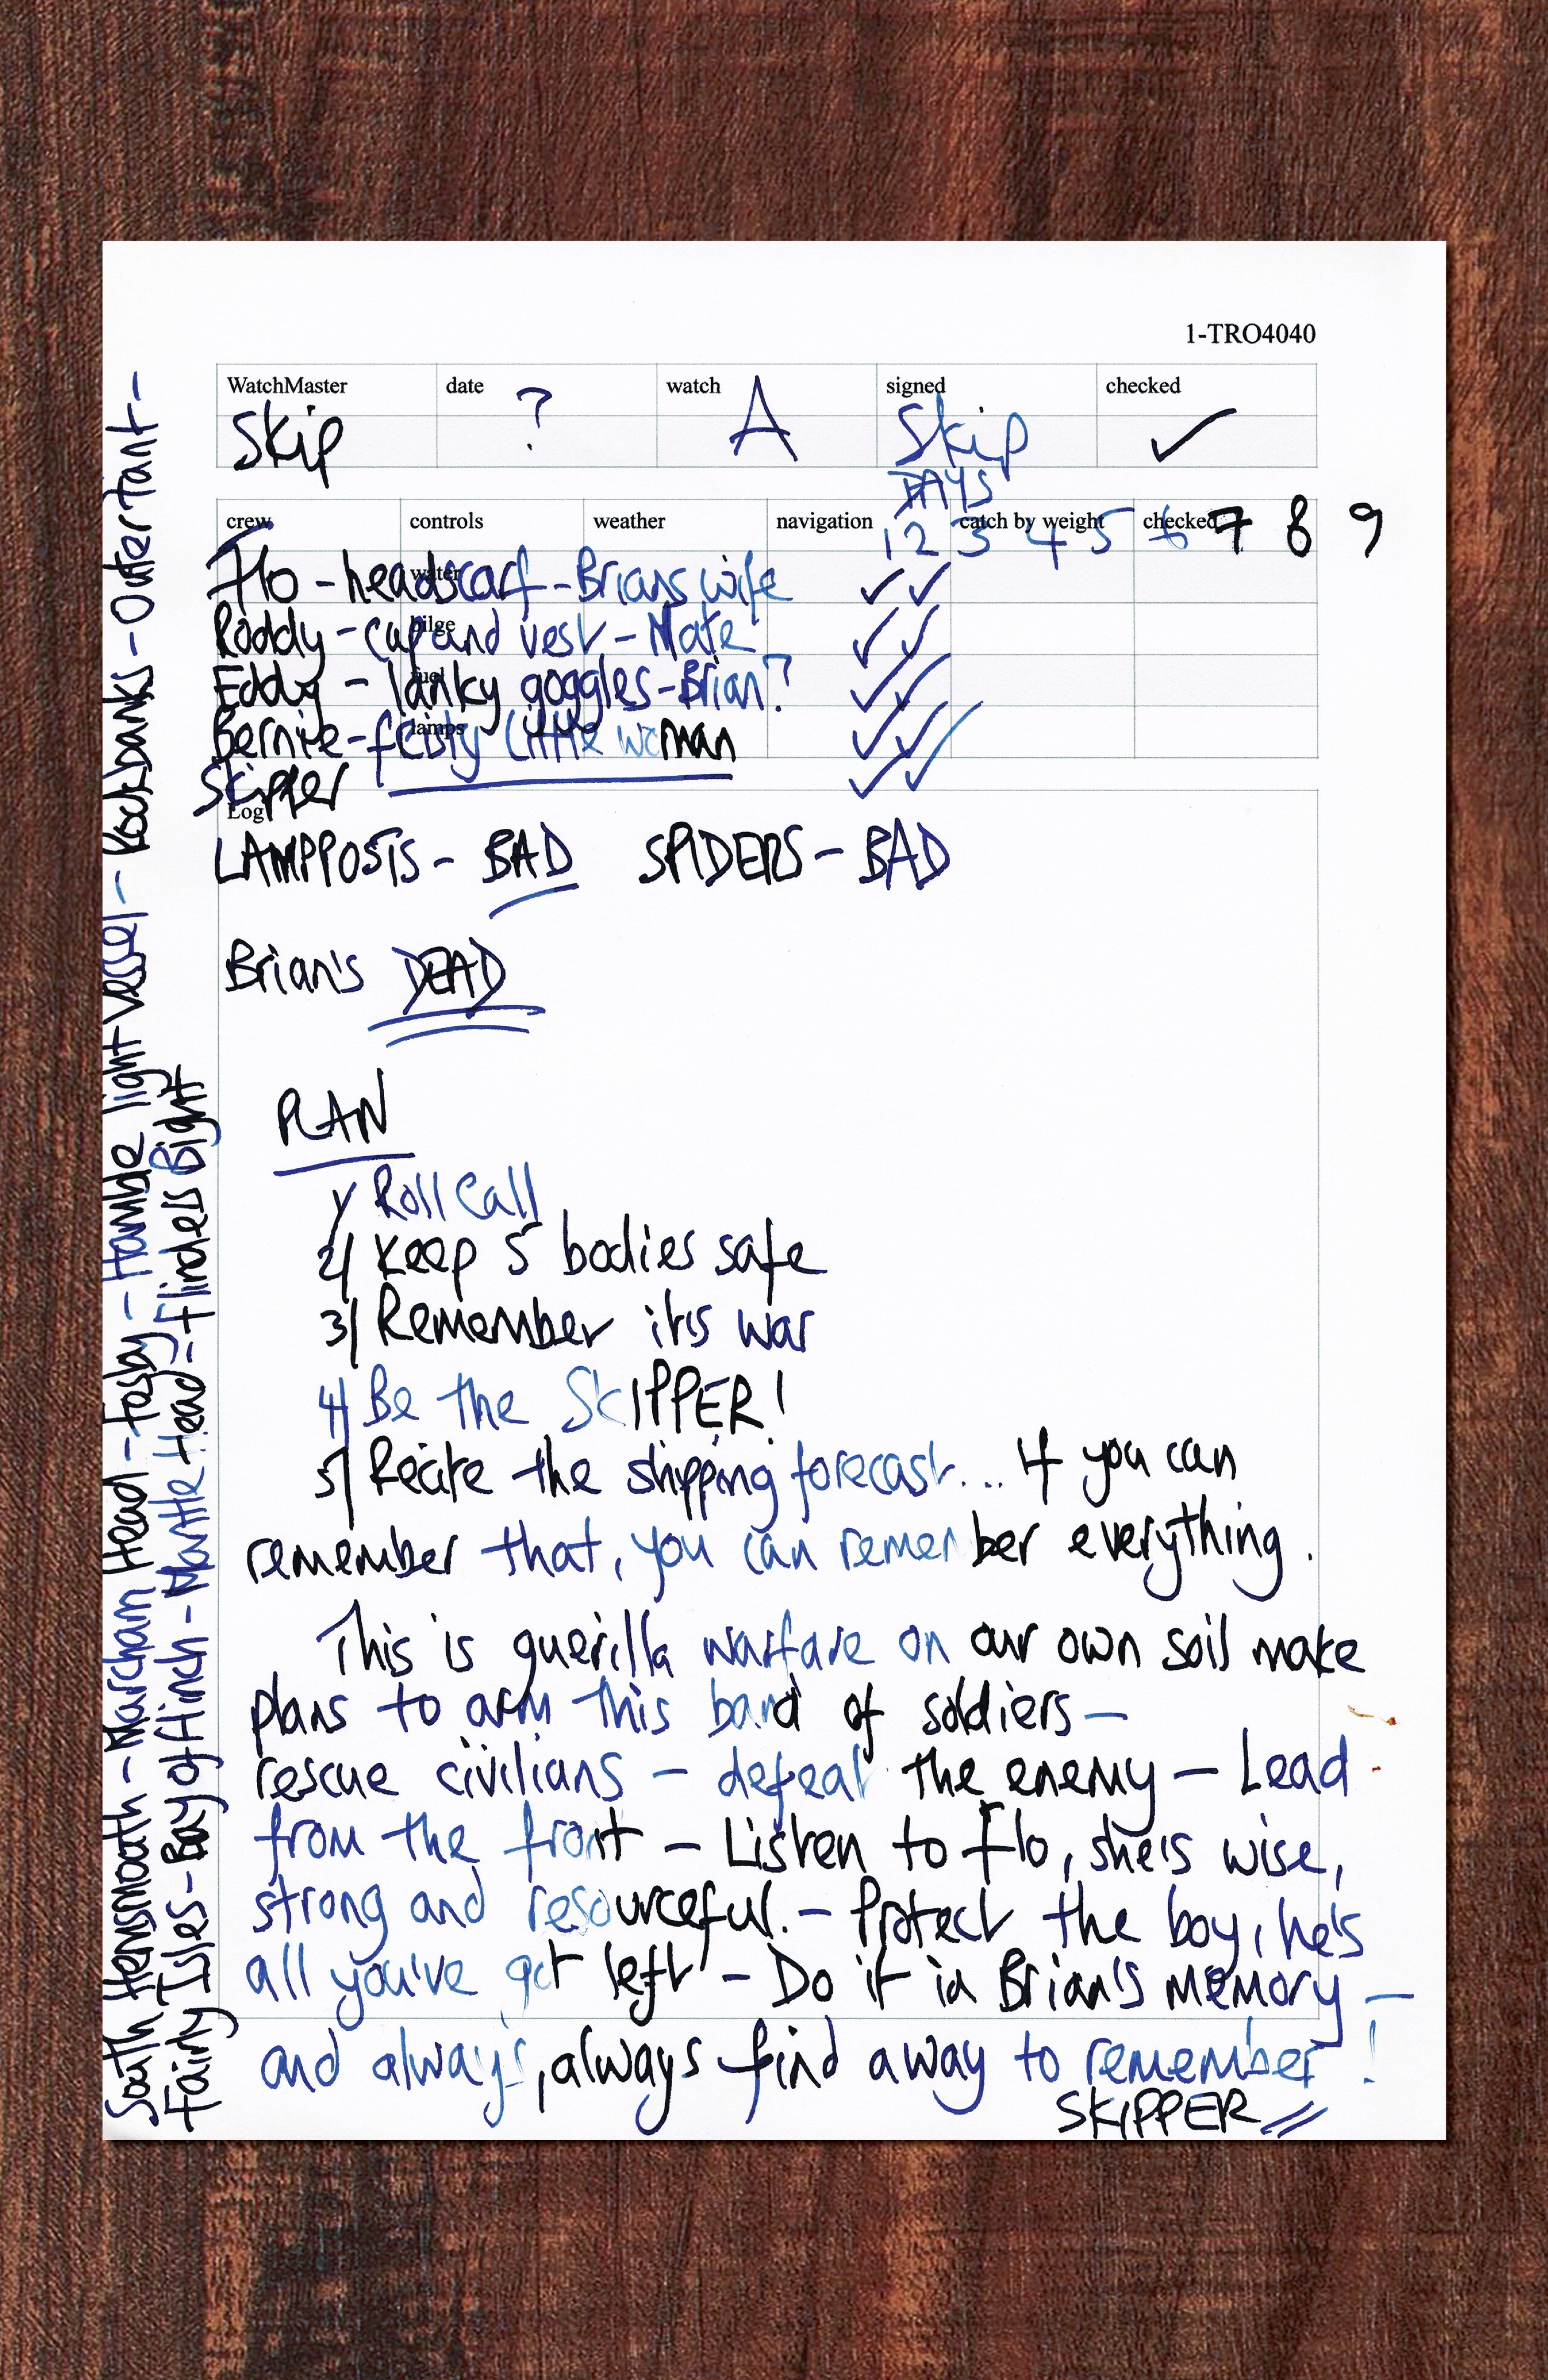 1-TRO4040
WatchMaster date watch signed checked
Skip ? A Skip ✓
DAYS
crew controls weather navigation catch by weight checked
1 2 3 4 5 6 7 8 9
water
Flo - headscarf - Brians wife ✓✓
bilge
Roddy - cap and vest - Mate ✓✓
fuel
Eddy - lanky goggles - Brian? ✓✓
lamps
Bernie - feisty little woman ✓✓
Skipper ✓✓
Log
LAMPPOSTS - BAD SPIDERS - BAD
Brian's DEAD
PLAN
1/ Roll Call
2/ Keep 5 bodies safe
3/ Remember it's war
4/ Be the SKIPPER!
5/ Recite the shipping forecast... If you can
remember that, you can remember everything.
This is guerilla warfare on our own soil make
plans to arm this band of soldiers -
rescue civilians - defeat the enemy - Lead
from the front - Listen to Flo, she's wise,
strong and resourceful. - Protect the boy, he's
all you've got left - Do it in Brian's memory -
and always, always find a way to remember!
SKIPPER
South Hemsmouth - Marcham Head - Fasby - Hamble light vessel - Rockbanks - Outer Tant -
Fairly Isles - Bay of Flinch - Mantle Head - Flinders Bight